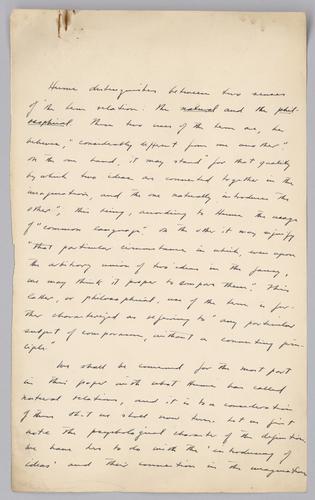 Hume distinguishes between two senses
of the term relation: the natural and the phil-
osophical. These two uses of the term are, he
believes, "considerably different from one another".
On the one hand, it may stand "for that quality
by which two ideas are connected together in the
imagination, and the one naturally introduces the
other", this being, according to Hume the usage
of "common language". On the other it may signify
"that particular circumstance in which, even upon
the arbitrary union of two ideas in the fancy,
we may think it proper to compare them." This
latter, or philosophical, use of the term is fur-
ther characterized as referring to "any particular
subject of comparison, without a connecting prin-
ciple".
We shall be concerned for the most part
in this paper with what Hume has called
natural relations, and it is to a consideration
of them that we shall now turn. Let us first
note the psychological character of the definition.
We have here to do with the 'introducing of
ideas' and their connection in the imagination